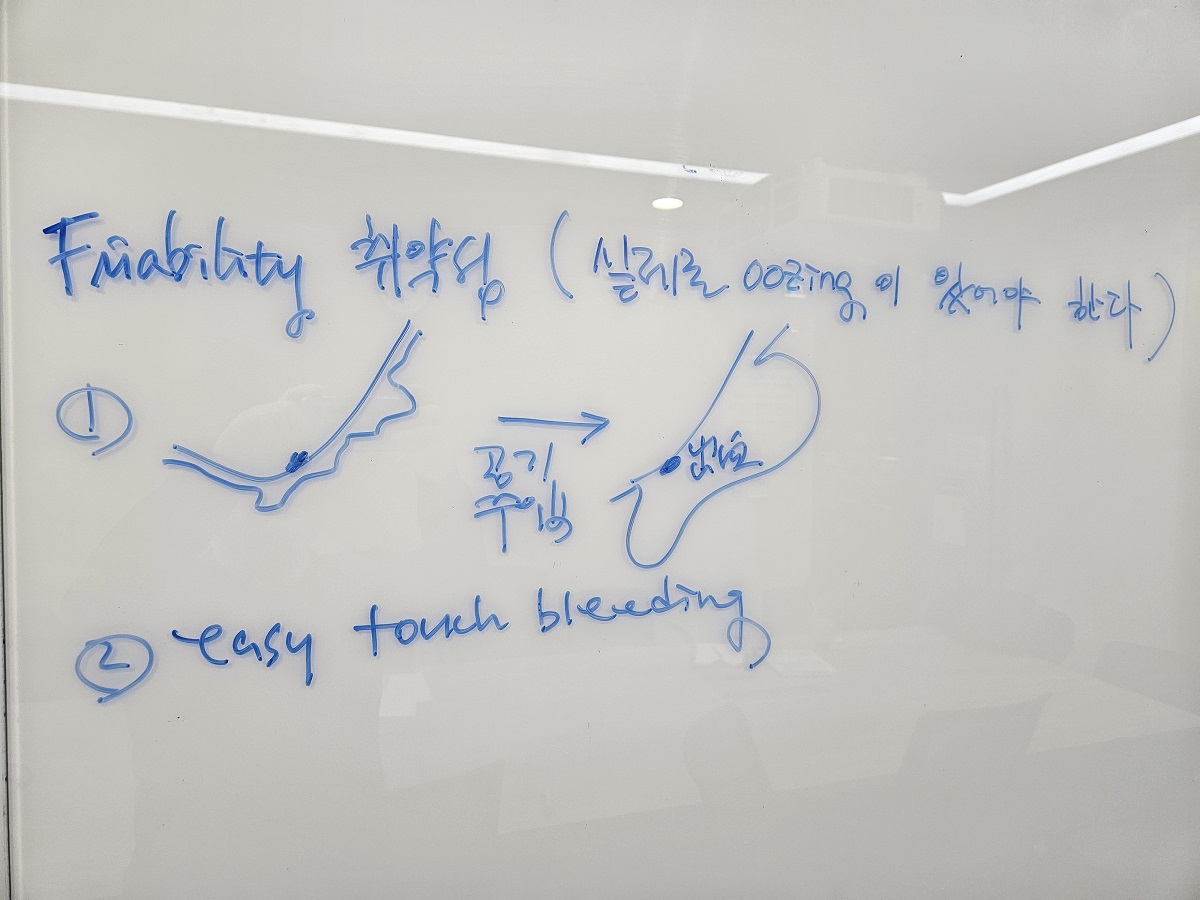 Friability 취약성 (실제로 oozing이 있어야 한다)
①
공기
주입
出血
② easy touch bleeding